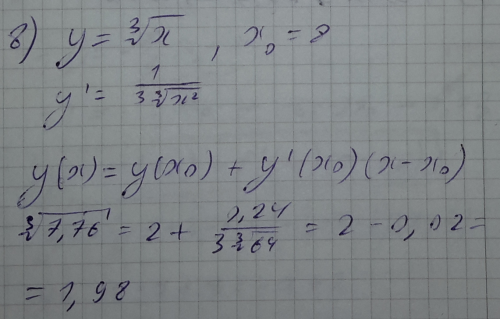 в) y = ∛x , x₀ = 8
y' = 1/(3∛x²)
y(x) = y(x₀) + y'(x₀)(x-x₀)
∛7,76 = 2 + 0,24/(3∛64) = 2 - 0,02 =
= 1,98